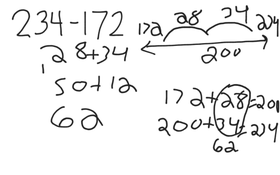 234-172
28+34
1
50+12
62
28 34
172 234
200
172+28=200
200+34=234
62